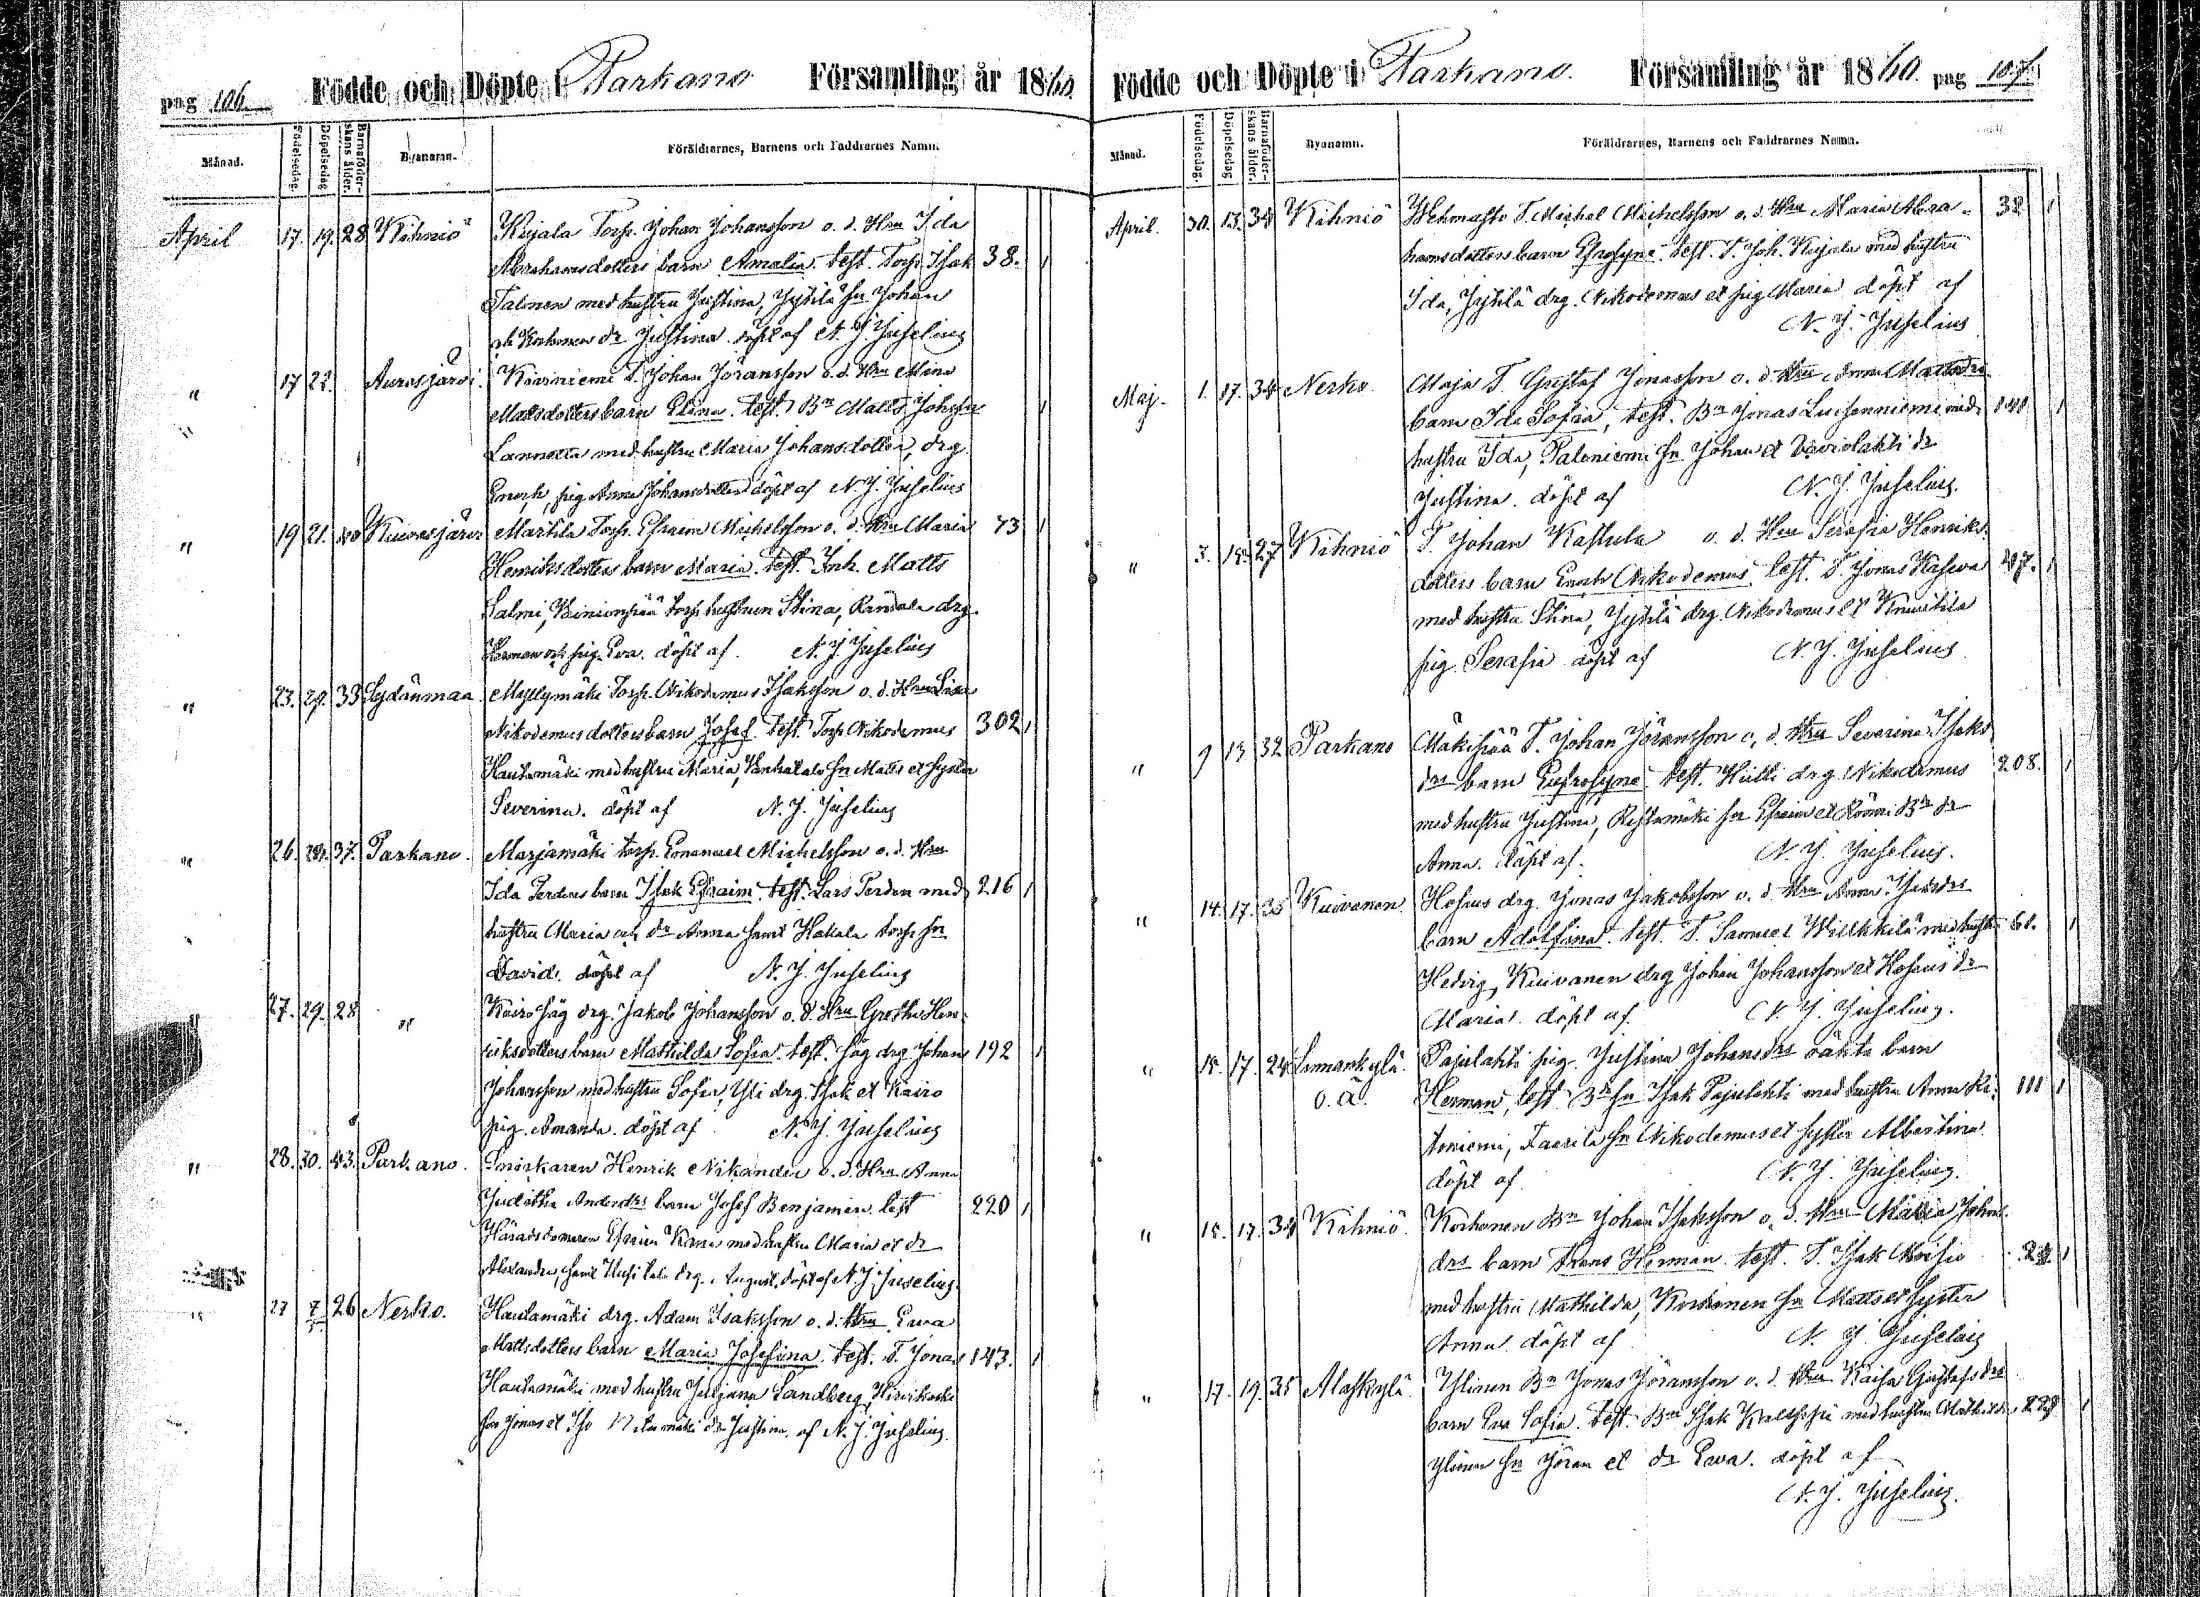 pag 106 Födde och Döpte i Parkano Församling år 1860.
Månad. Födelsedag. Döpelsedag Barnaföderskans ålder. Byanamn. Föräldrarnes, Barnens och Faddrarnes Namn.
April 17. 19. 28 Kihniö Kujala Torp. Johan Johansson o. d. Hru Ida
Abrahamsdotters barn Amalia. test. Torp. Isak 38.
Salmen med hustru Justina, Jyhilä Sn Johan
och Korhonen dr Justina. döpt af N. J. Juselius
" 17 22. Auresjärvi. Kiviniemi T. Johan Jöransson o. d. Hru Mina
Matsdotters barn Elina. test. Bn Matts Johsson
Lannetta med hustru Maria Johansdotter, drg.
Enoch, pig Anna Johansdotter döpt af N. J. Juselius
" 19 21. 40 Kuivasjärvi Marttila Torp. Efraim Michelsson o. d. Hru Maria 73
Henriksdotters barn Maria. test. Inh. Matts
Salmi, torp. hustrun Stina, drg.
Herman och pig. Eva. döpt af N. J. Juselius
" 23. 29. 33 Sydänmaa Myllymäki Torp. Nikodemus Isaksson o. d. Hru Lisa
Nikodemusdotters barn Josef. test. Torp. Nikodemus 302
Hautamäki med hustru Maria, Vanhatalo Sn Matts et syster
Severina. döpt af N. J. Juselius
" 26. 29. 37. Parkano. Marjamäki torp. Emanuel Michelsson o. d. Hru
Ida Perdens barn Isak Efraim. test. Lars Perden med 216
hustru Maria och dr Anna samt Hakala torp. sn
David. döpt af N. J. Juselius
27. 29. 28 " Kairo håg drg. Jakob Johansson o. d. Hru Greta Hen-
riksdotters barn Mathilda Sofia. test. håg drg Johan 192
Johansson med hustru Sofia, Yli drg. Isak et Kairo
pig. Amanda. döpt af N. J. Juselius
" 28. 30. 43. Parkano. Snickaren Henrik Nikander o. d. Hru Anna
Juditha Andersdrs barn Josef Benjamin test 220
Häradsdomaren Efraim med hustru Maria et dr
Alexandra, samt drg. August, döpt af N. J. Juselius.
27 7/5 26 Nerko. Hautamäki drg. Adam Isaksson o. d. Hru Ewa
Mattsdotters barn Maria Josefina. test. T. Jonas 143.
Hautamäki med hustru Juljana Sandberg,
sn Jonas et dr Justina. af N. J. Juselius.
Födde och Döpte i Parkano. Församling år 1860. pag 107
Månad. Födelsedag. Döpelsedag Barnaföderskans ålder. Byanamn. Föräldrarnes, Barnens och Faddrarnes Namn.
April. 30. 13. 34 Kihniö Wehmasto T. Michel Michelsson o. d. Hru Maria Abra- 32
hamsdotters barn Efrosyne. test. T. Joh. Kujala med hustru
Ida, Jyhilä drg. Nikodemus et pig Maria döpt af
N. J. Juselius
Maj. 1. 17. 34 Nerko. Maja T. Gustaf Jonasson o. d. Hru Anna Mattsdrs
barn Ida Sofia, test. Bn Jonas Luisenniemi med 141
hustru Ida, Paloniemi Sn Johan et Vaviolahti dr
Justina. döpt af N. J. Juselius.
" 3. 27 Kihniö T. Johan Kastula o. d. Hru Serafia Henriks
dotters barn Enoch Nikodemus. test. T. Jonas 47.
med hustru Stina, Jyhilä drg. Nikodemus et Knuutila
pig. Serafia döpt af N. J. Juselius
" 9 13 32 Parkano Mäkipää T. Johan Jöransson o, d. Hru Severina Isaks
drs barn Eufrosyne test. Hülli drg. Nikodemus 208.
med hustru Justina, sn Efraim et Bn dr
Anna. döpt af. N. J. Juselius.
" 14. 17. 35 Kuivanen. Hosius drg. Jonas Jakobsson o. d. Hru Anna Isaksdrs
barn Adolfina. test. T. Samuel Wilkkilä med hustru 61.
Hedvig, Kuivanen drg Johan Johansson et Hosius dr
Maria. döpt af N. J. Juselius.
" 15. 17. 24 Linnankylä Pajulahti pig. Justina Johansdrs oäkta barn
o. ä. Herman, test Bn sn Isak Pajulahti med hustru Anna Ki- 111
toniemi, Sn Nikodemus et syster Albertina.
döpt af N. J. Juselius.
" 15. 17. 34 Kihniö. Korhonen Bn Johan Isaksson o. d. Hru Maria Johns
drs barn Frans Herman. test. T. Isak 24.
med hustru Mathilda, Korhonen Sn Matts et syster
Anna döpt af N. J. Juselius
" 17. 19. 35 Alaskylä. Ylinen Bn Jonas Jöransson o. d. Hru Kaisa Gustafsdrs
barn Eva Sofia. test. Bn Isak med hustru Mathilda, 229
Ylinen Sn Jöran et dr Ewa. döpt af
N. J. Juselius.